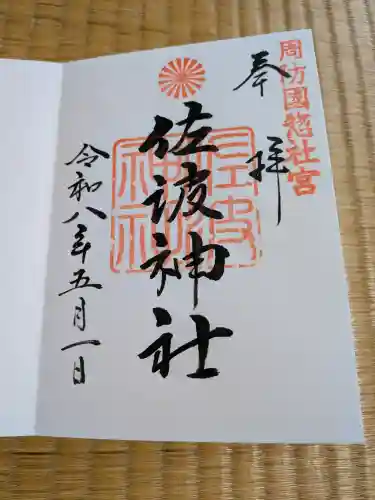 奉拝
周防國惣社宮
佐波神社
佐波神社
令和八年五月一日